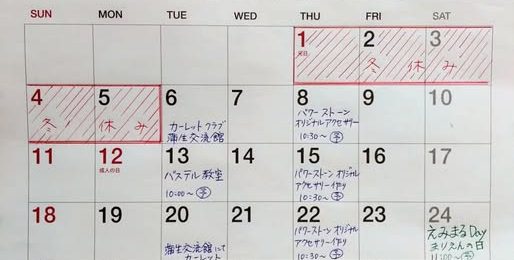 SUN MON TUE WED THU FRI SAT
1 2 3
元日
冬 休 み
4 5 6 7 8 9 10
冬 休 み
カーレット クラブ
蒲生交流館
パワーストーン
オリジナルアクセサリー
10:30～ 予
11 12 13 14 15 16 17
成人の日
パステル教室
10:00～ 予
パワーストーン オリジナル
アクセサリー作り
10:30～ 予
18 19 20 21 22 23 24
蒲生交流館にて
カーレット
パワーストーン オリジナル
アクセサリー作り
10:30～ 予
えみまるDay
まりえんの日
11:00～